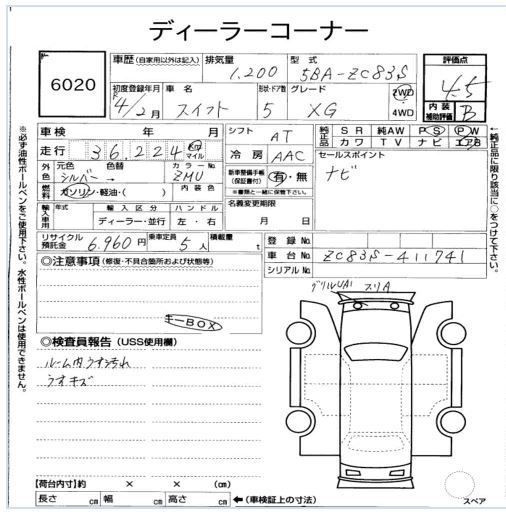 ディーラーコーナー
6020
車歴 (自家用以外は記入) 排気量 型式
1,200 5BA-ZC83S
評価点
4.5
初度登録年月 車名 形状・ドア数 グレード
4/2月 スイフト 5 XG
2WD
4WD
内装
補助評価 B
車検 年 月
シフト AT
純正品 SR 純AW PS PW
カワ TV ナビ エアB
走行 36,224 km
マイル
冷房 AAC
セールスポイント
ナビ
外色 元色 色替 カラーNo.
シルバー → ZMU
新車整備手帳
(保証書付) 有・無
※書類と一緒に保管下さい。
燃料 ガソリン・軽油・( ) 内装色
名義変更期限
月 日
輸入車用 年式 輸入区分 ハンドル
ディーラー・並行 左・右
リサイクル
預託金 6,960円 乗車定員 5人 積載量 t
登録No.
車台No. ZC83S-411741
シリアルNo.
◎注意事項 (修復・不具合箇所および状態等)
キーBOX
◎検査員報告 (USS使用欄)
ルーム内うす汚れ
うすキズ
グリルUA1 スリA
【荷台内寸】約 × × (cm)
長さ cm 幅 cm 高さ cm ←(車検証上の寸法)
スペア
※必ず油性ボールペンをご使用下さい。水性ボールペンは使用できません。
←純正品に限り該当に○をつけて下さい。